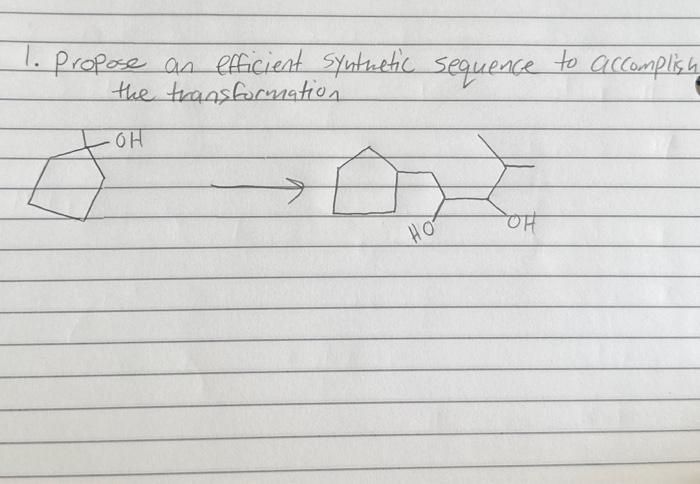 1. Propose an efficient synthetic sequence to accomplish
the transformation
OH
HO
OH